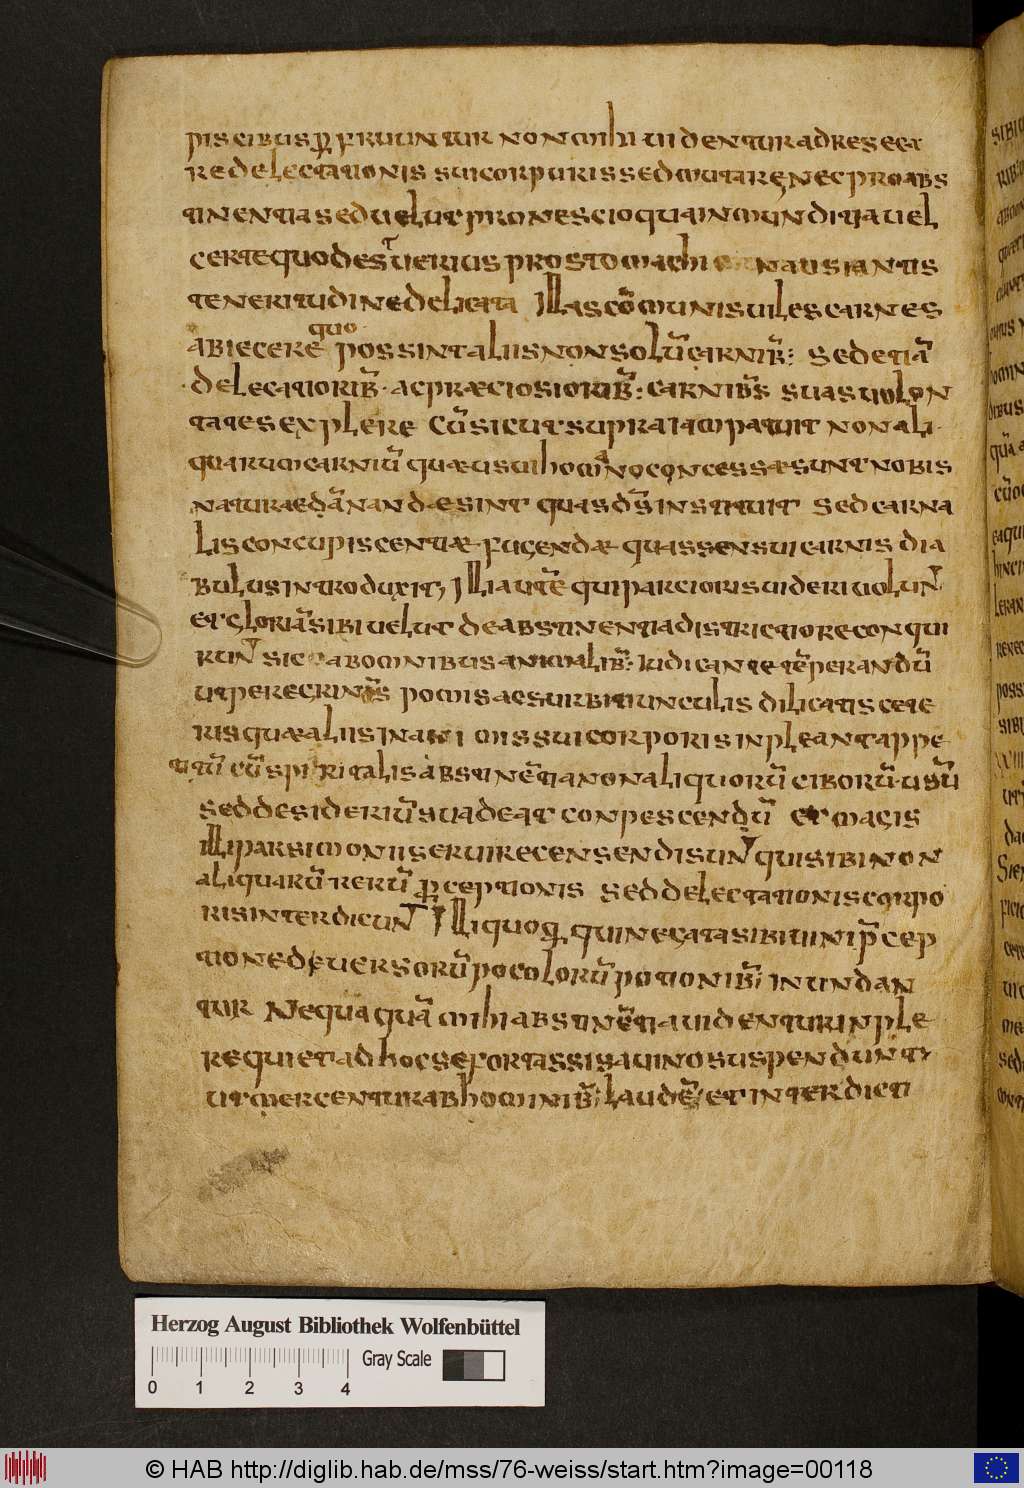 piscibus ꝑfruuntur non mihi uidentur ad reseca
re delectationis sui corpuris sed mutare nec pro abs
tinentia sed uelut pro nescio qua inmunditia uel
certe quod est uerius pro stomachi nausiantis
teneritudine delicata Illas cōmunis uiles carnes
abiecere quo possint aliis non solū carnib; sed etiā
delecatiorib· ac præciosiorib: carnibs suas uolon
tates explere Cū sicut supra iam patuit non ali
quarum carniū quæ usui homano concessæ sunt nobis
naturae dānandæ sint quas ds̄ instituit sed carna
lis concupiscentiæ fugendæ quas sensui carnis dia
bulus introduxit, Illi autē qui parcioris uideri uolunt
et gloriā sibi uelut de abstinentia districtiore conqui
runt sic ab omnibus animalib: iudicante tēperandū
ut peregrinis pomis ac surbitiunculis dilicatis cete
risquæ aliis inani missui corporis inpleant appe
titū cū spiritalis abstinētia non aliquorū ciborū usū
sed desideriū suadeat conpescendū et magis
illi parsimonii serui recensendi sunt qui sibi non
aliquarū rerū ꝑceptionis sed delectationis corpo
ris interdicunt Illi quoq qui negata sibi uini ꝑcep
tione deuersorū pocolorū potionib; inundan
tur Nequaquā mihi abstinētia uidentur inple
re qui et ad hoc se fortassis a uino suspendunt
ut mercentur ab hominib; laudē, et interdicti
Herzog August Bibliothek Wolfenbüttel
Gray Scale
0 1 2 3 4
© HAB http://diglib.hab.de/mss/76-weiss/start.htm?image=00118